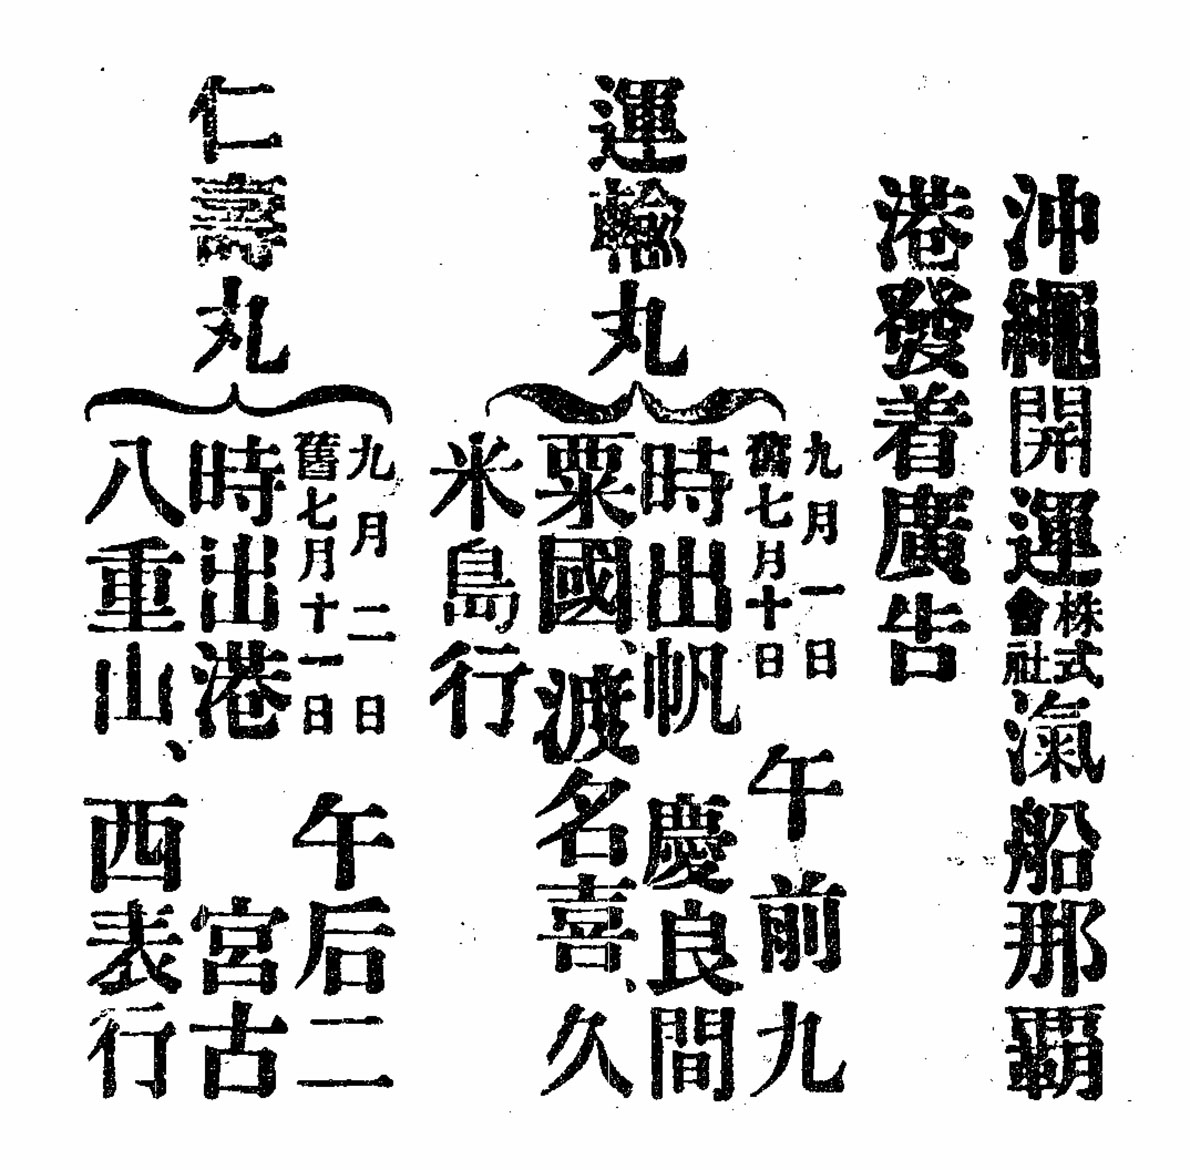 沖繩開運株式會社滊船那覇
港發着廣告
運輸丸
九月一日
舊七月十日
午前九
時出帆 慶良間
粟國、渡名喜、久
米島行
仁壽丸
九月二日
舊七月十一日
午后二
時出港 宮古
八重山、西表行